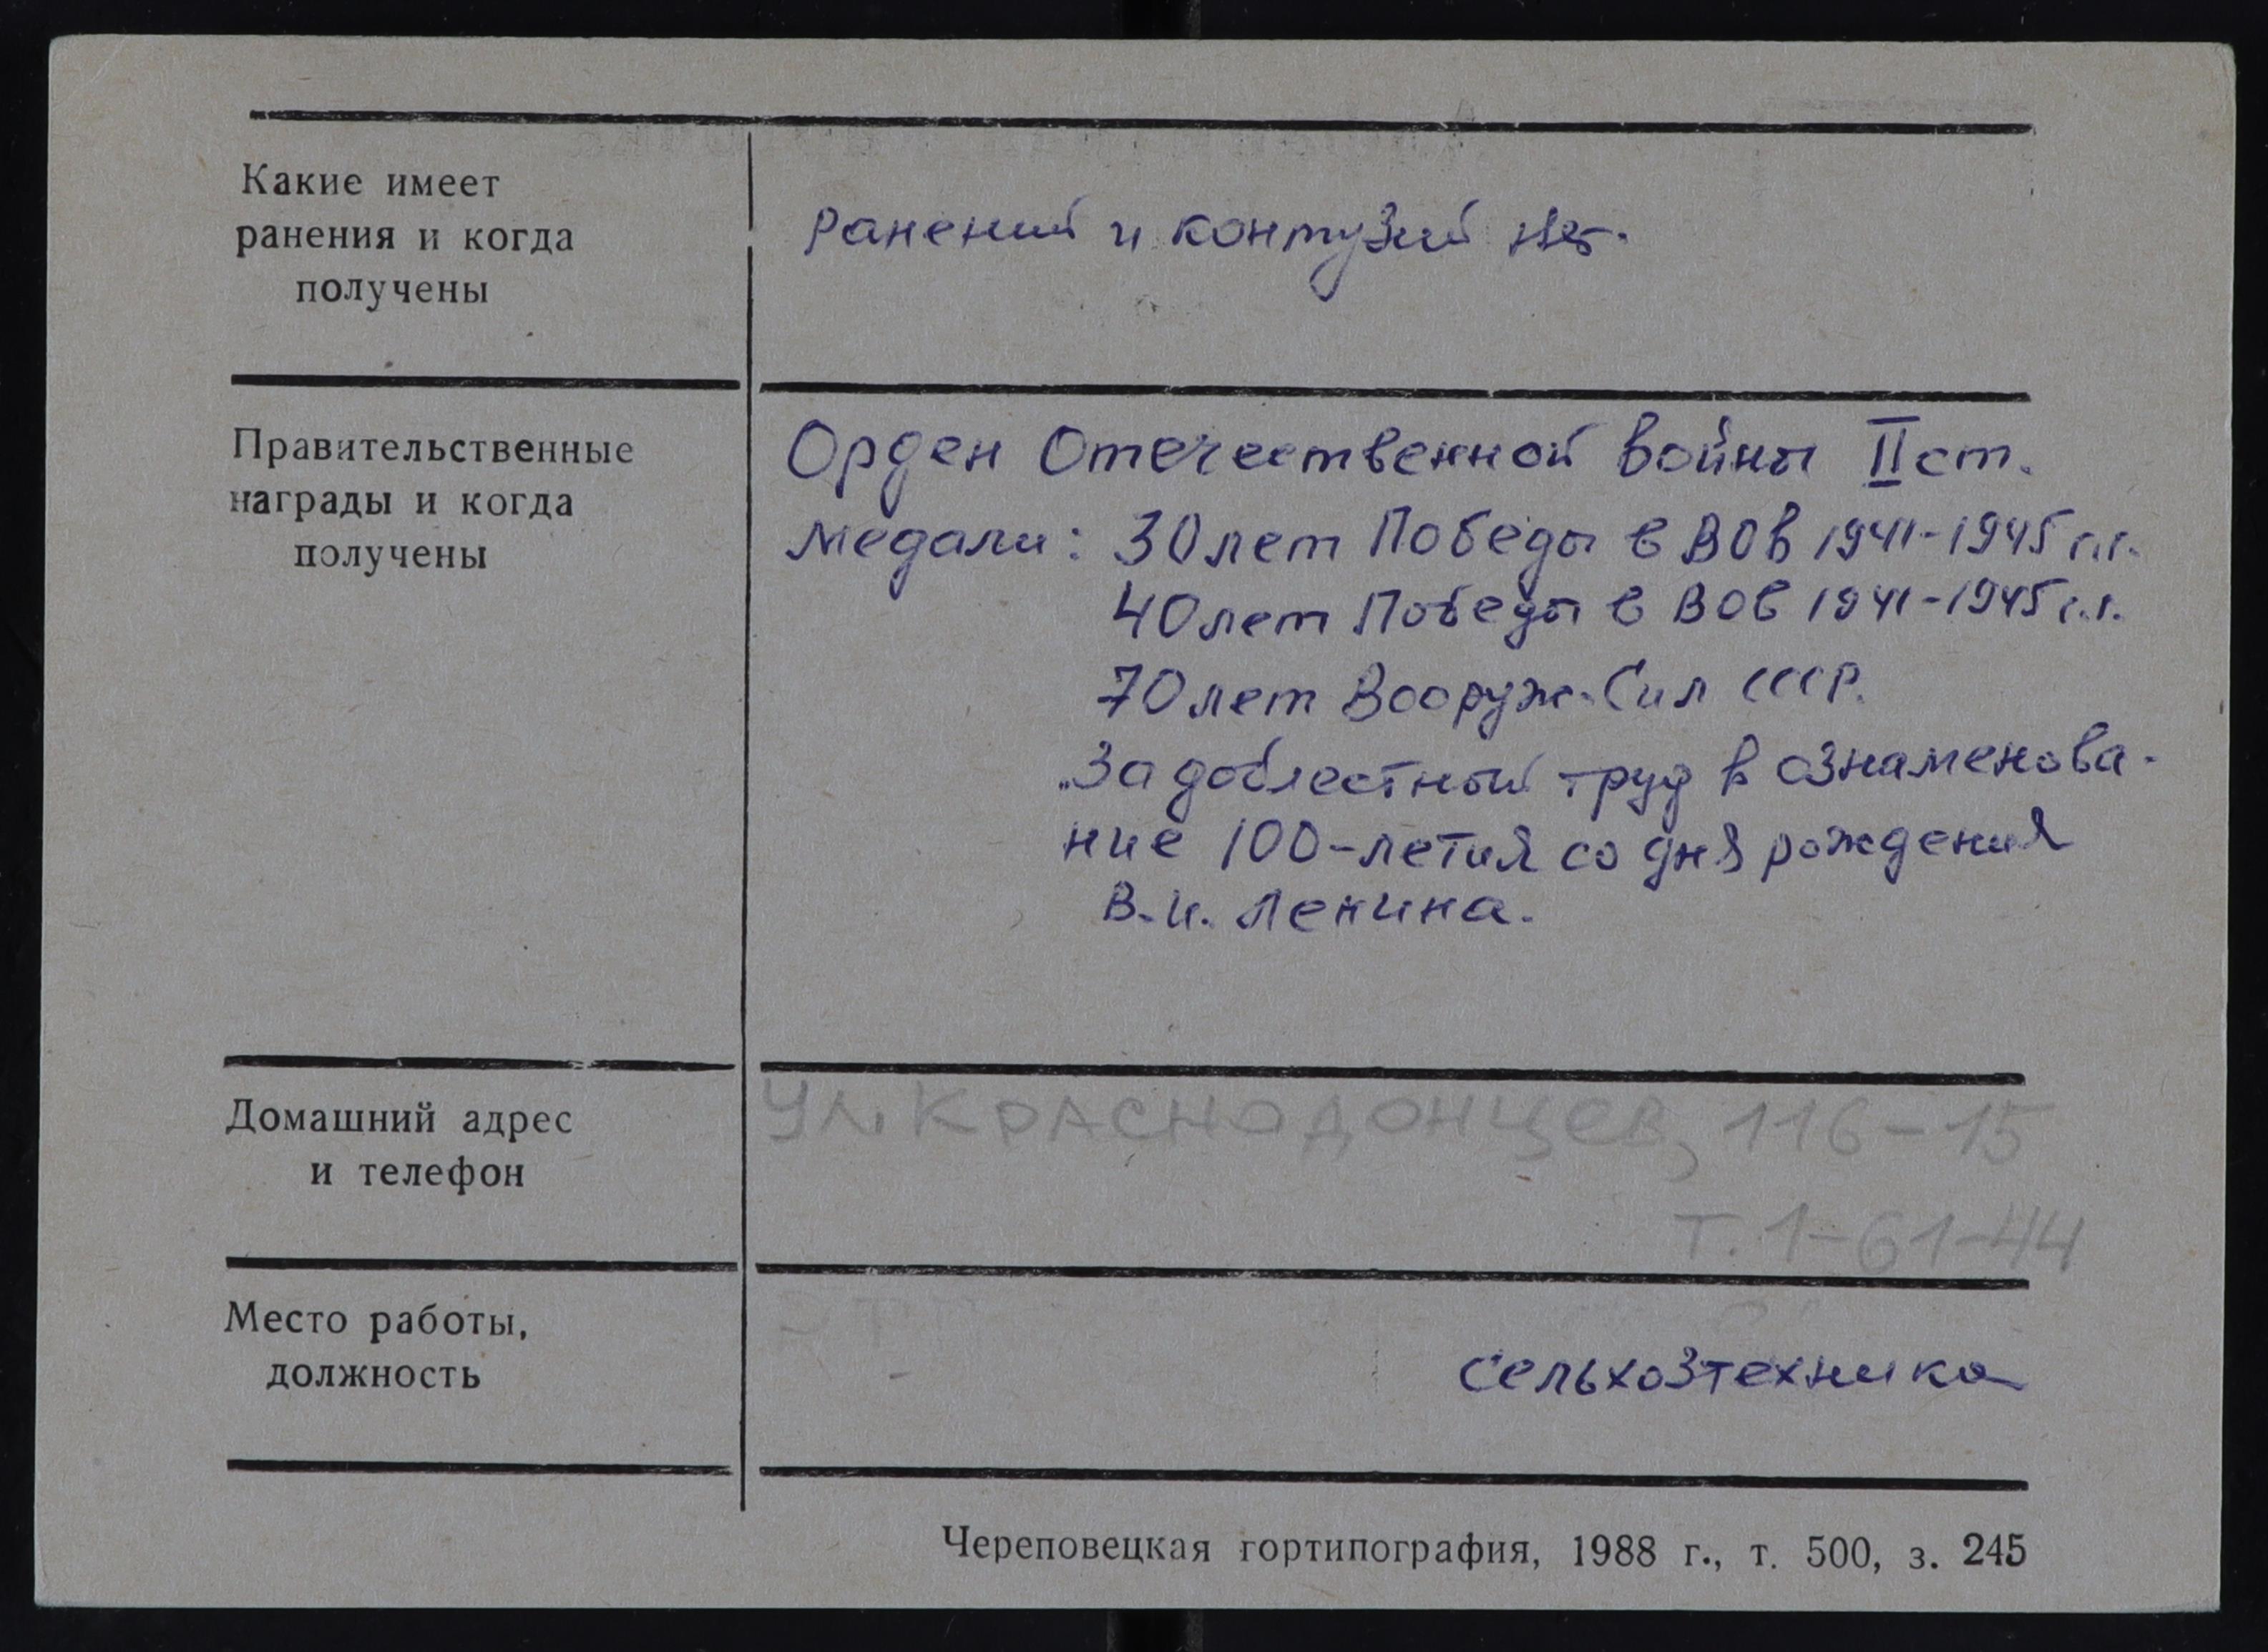 Какие имеет
ранения и когда
получены
Ранений и контузий нет.
Правительственные
награды и когда
получены
Орден Отечественной войны II ст.
Медали: 30 лет Победы в ВОв 1941-1945 г.г.
40 лет Победы в ВОв 1941-1945 г.г.
70 лет Вооруж. Сил СССР.
„За доблестный труд в ознаменова-
ние 100-летия со дня рождения
В.И. Ленина.
Домашний адрес
и телефон
ул. Краснодонцев, 116-15
т. 1-61-44
Место работы,
должность
Сельхозтехника
Череповецкая гортипография, 1988 г., т. 500, з. 245